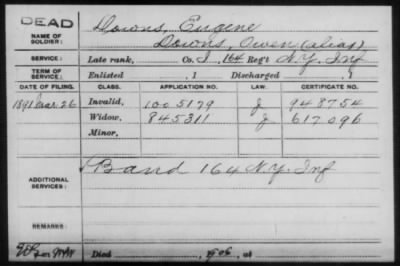 DEAD
NAME OF SOLDIER:
Downs, Eugene
Downs, Owen (alias)
SERVICE: Late rank, Co. I, 164 Reg't N.Y. Inf
TERM OF SERVICE: Enlisted , 1 Discharged , 1
DATE OF FILING. CLASS. APPLICATION NO. LAW. CERTIFICATE NO.
1891 Mar 26 Invalid, 1005179 J 948754
Widow, 845311 J 617096
Minor,
ADDITIONAL SERVICES:
Band 164 N.Y. Inf
REMARKS:
Died , 1906, at